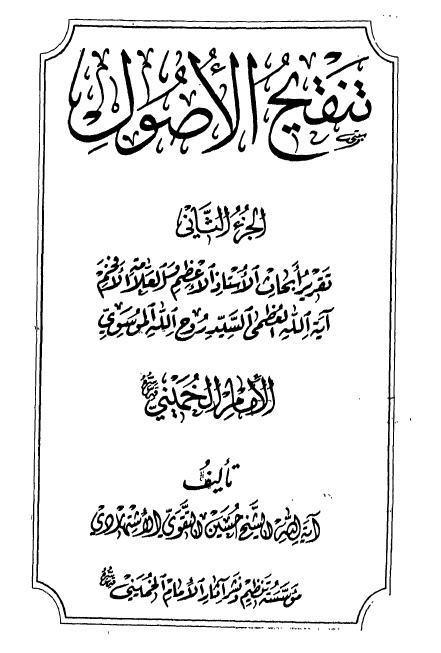 تنقيح الأصول
الجزء الثاني
تقرير أبحاث الأستاذ الأعظم والعلامة الأفخم
آية الله العظمى السيد روح الله الموسوي
الإمام الخميني
تأليف
آية الله الشيخ حسين التقوي الاشتهاردي
مؤسسة تنظيم ونشر آثار الإمام الخميني